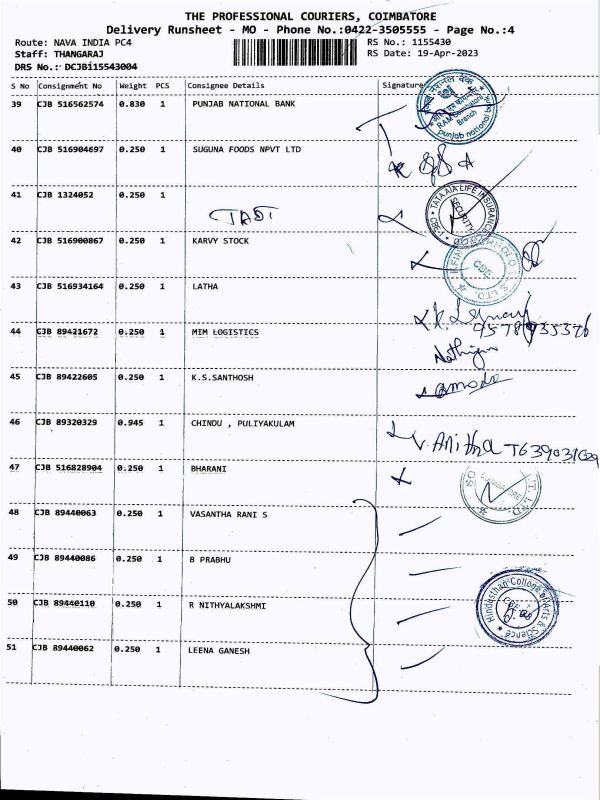 THE PROFESSIONAL COURIERS, COIMBATORE
Delivery Runsheet - MO - Phone No.:0422-3505555 - Page No.:4
Route: NAVA INDIA PC4 RS No.: 1155430
Staff: THANGARAJ RS Date: 19-Apr-2023
DRS No.: DCJBi15543004
S No Consignment No Weight PCS Consignee Details Signature
39 CJB 516562574 0.830 1 PUNJAB NATIONAL BANK
punjab national
Branch
40 CJB 516904697 0.250 1 SUGUNA FOODS NPVT LTD
41 CJB 1324052 0.250 1
TATA AIA LIFE INSURANCE
SECURITY
CBE-1
42 CJB 516900867 0.250 1 KARVY STOCK
CBE
43 CJB 516934164 0.250 1 LATHA
44 CJB 89421672 0.250 1 MIM LOGISTICS
45 CJB 89422605 0.250 1 K.S.SANTHOSH
46 CJB 89320329 0.945 1 CHINDU , PULIYAKULAM
V. Anitha
47 CJB 516828904 0.250 1 BHARANI
48 CJB 89440063 0.250 1 VASANTHA RANI S
49 CJB 89440086 0.250 1 B PRABHU
50 CJB 89440110 0.250 1 R NITHYALAKSHMI
Hindusthan College of Arts & Science
51 CJB 89440062 0.250 1 LEENA GANESH